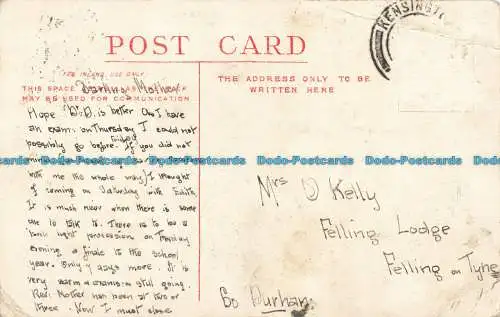 POST CARD
KENSINGT
FOR INLAND USE ONLY
THIS SPACE
MAY BE USED FOR COMMUNICATION
THE ADDRESS ONLY TO BE
WRITTEN HERE
Darling Mother
Hope is better. I have
an exam on Thursday I could not
possibly go before. If you did not
with me the whole way) I thought
of coming on Saturday with Edith
It is much nicer when there is some
one to talk to. There is to be a
light procession on
evening a finale to the school
year. Only 4 days more. It is
very warm & exams still going.
Rev. Mother has been at two or
three. Now I must close
Mrs O Kelly
Felling Lodge
Felling on Tyne
Co Durham
Dodo-Postcards.com Dodo-Postcards.com Dodo-Postcards.com